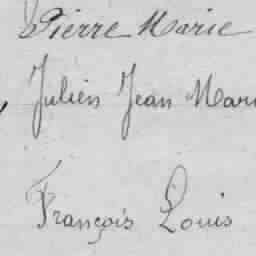 Pierre Marie
Julien Jean Mari
François Louis